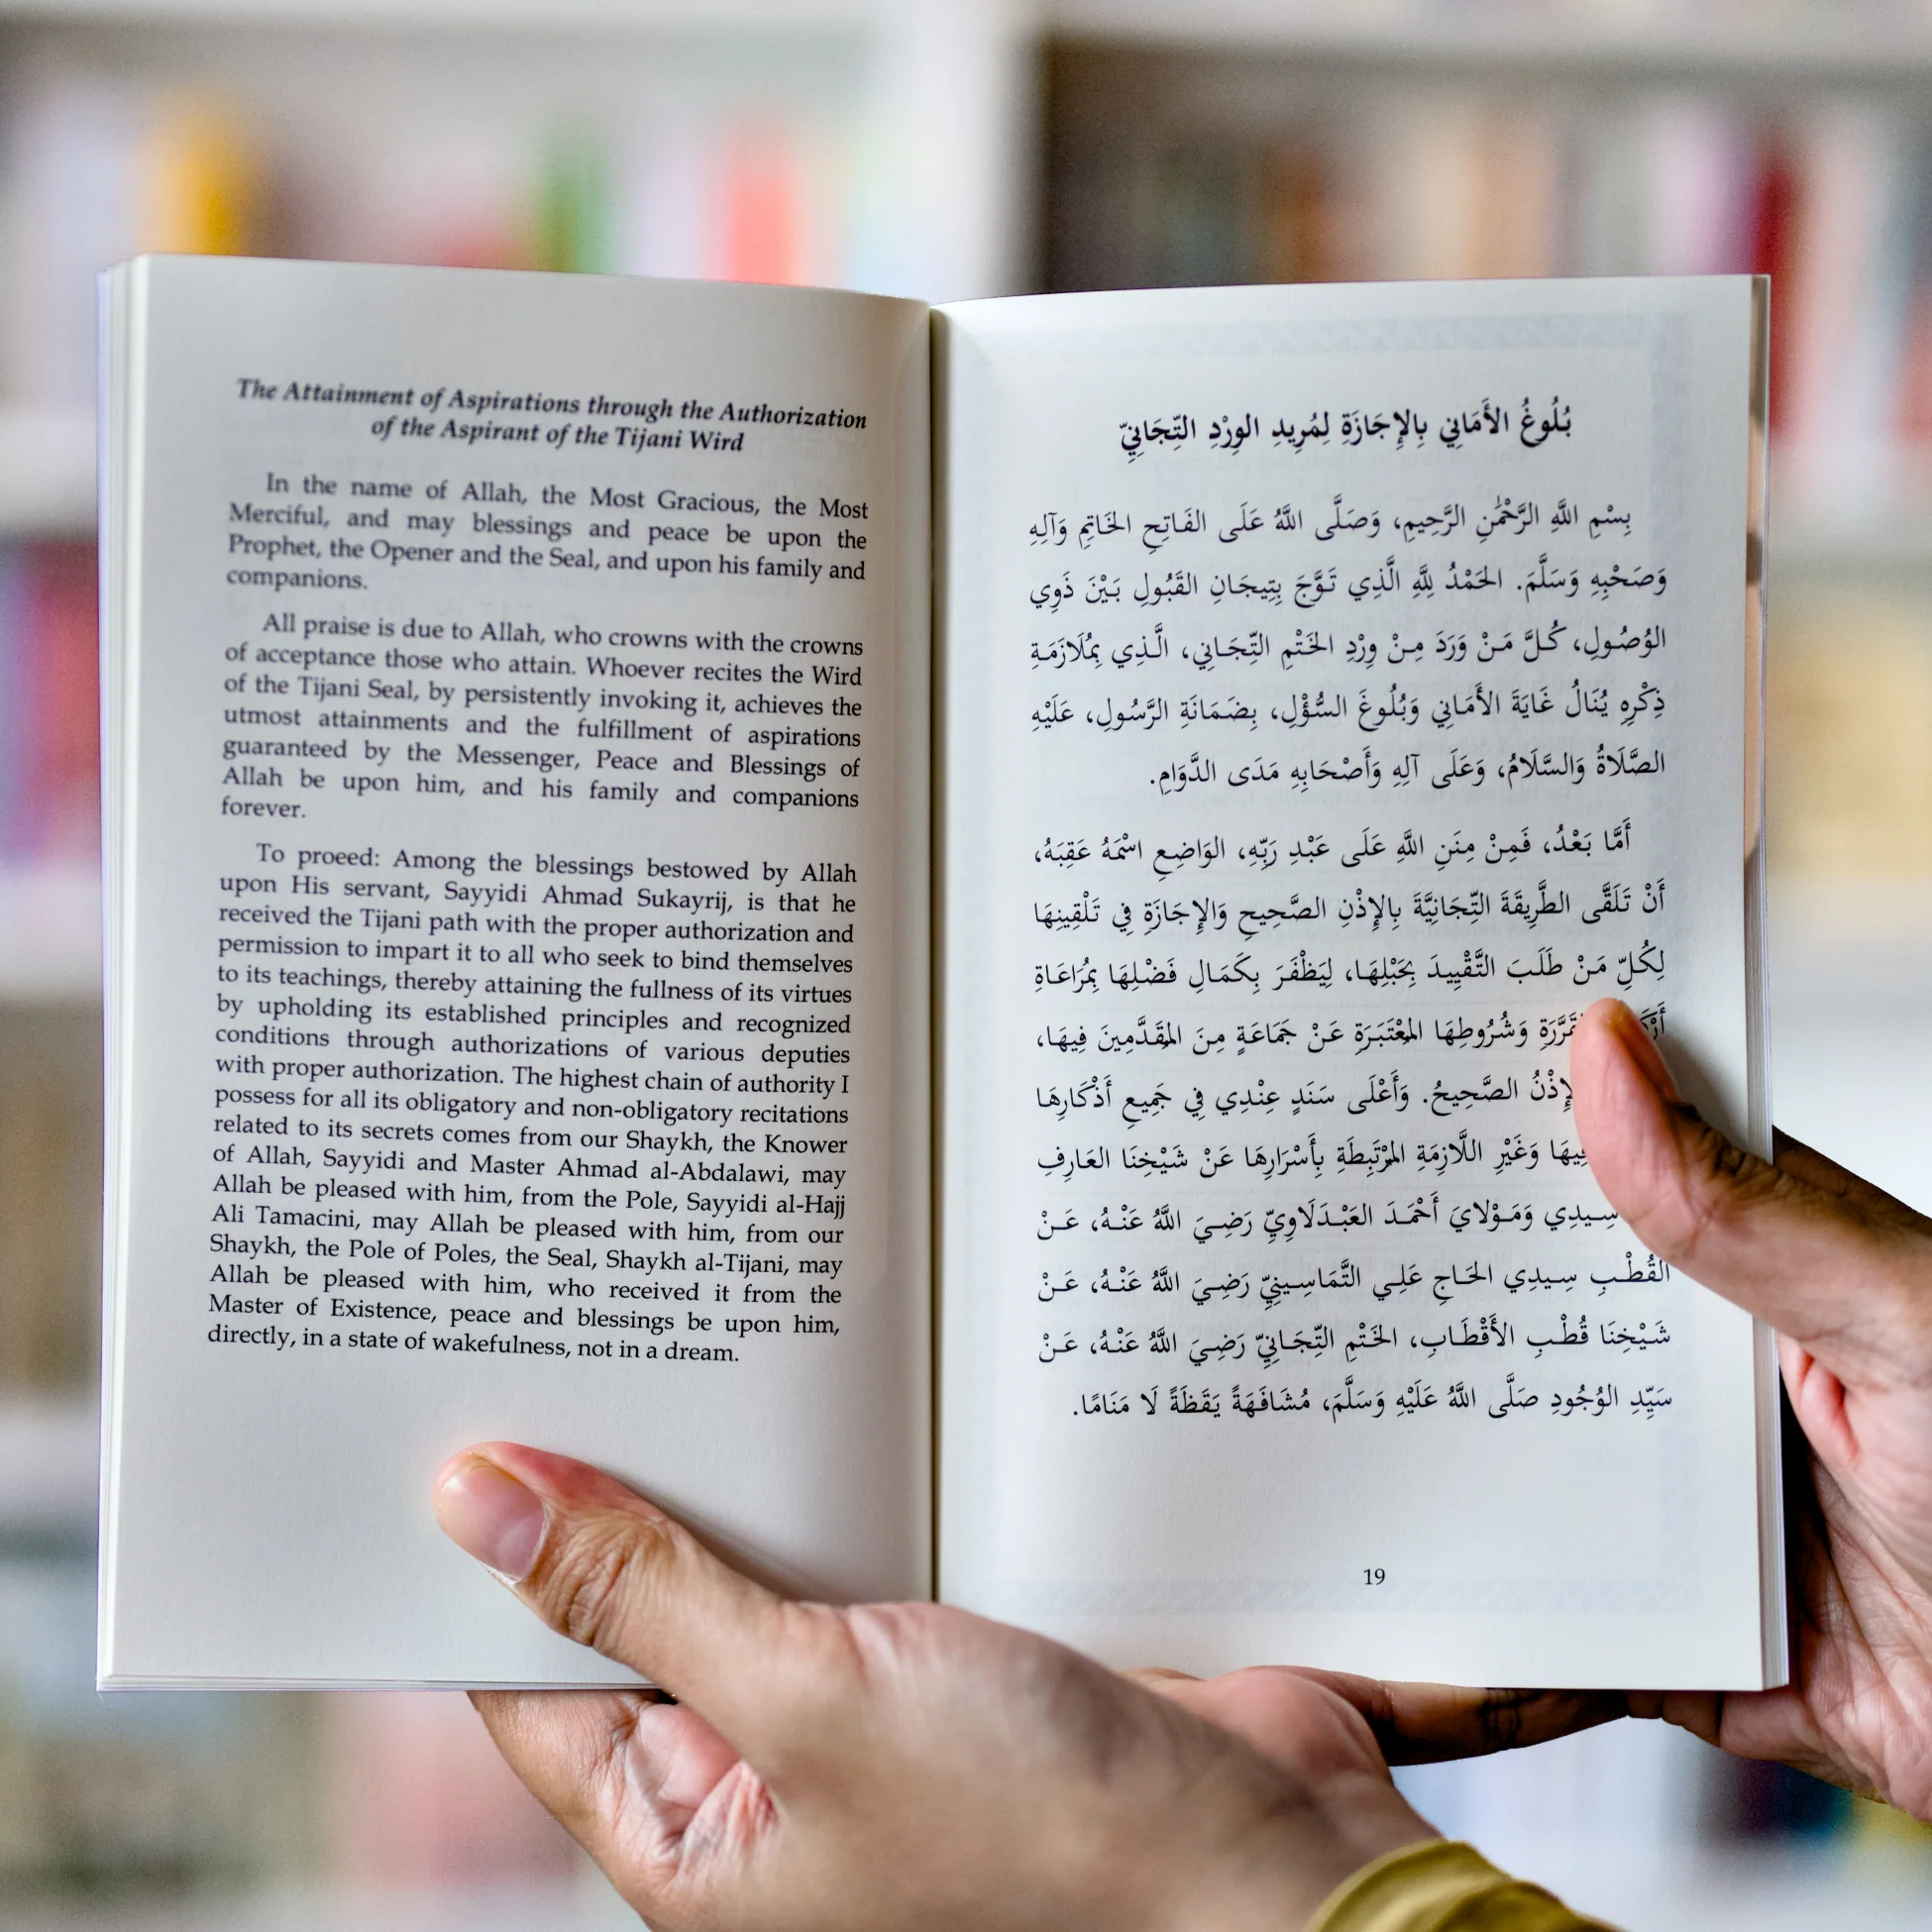 The Attainment of Aspirations through the Authorization
of the Aspirant of the Tijani Wird
In the name of Allah, the Most Gracious, the Most
Merciful, and may blessings and peace be upon the
Prophet, the Opener and the Seal, and upon his family and
companions.
All praise is due to Allah, who crowns with the crowns
of acceptance those who attain. Whoever recites the Wird
of the Tijani Seal, by persistently invoking it, achieves the
utmost attainments and the fulfillment of aspirations
guaranteed by the Messenger, Peace and Blessings of
Allah be upon him, and his family and companions
forever.
To proeed: Among the blessings bestowed by Allah
upon His servant, Sayyidi Ahmad Sukayrij, is that he
received the Tijani path with the proper authorization and
permission to impart it to all who seek to bind themselves
to its teachings, thereby attaining the fullness of its virtues
by upholding its established principles and recognized
conditions through authorizations of various deputies
with proper authorization. The highest chain of authority I
possess for all its obligatory and non-obligatory recitations
related to its secrets comes from our Shaykh, the Knower
of Allah, Sayyidi and Master Ahmad al-Abdalawi, may
Allah be pleased with him, from the Pole, Sayyidi al-Hajj
Ali Tamacini, may Allah be pleased with him, from our
Shaykh, the Pole of Poles, the Seal, Shaykh al-Tijani, may
Allah be pleased with him, who received it from the
Master of Existence, peace and blessings be upon him,
directly, in a state of wakefulness, not in a dream.
بُلُوغُ الأَمَانِي بِالإِجَازَةِ لِمُرِيدِ الوِرْدِ التِّجَانِيِّ
بِسْمِ اللَّهِ الرَّحْمٰنِ الرَّحِيمِ، وَصَلَّى اللَّهُ عَلَى الفَاتِحِ الخَاتِمِ وَآلِهِ
وَصَحْبِهِ وَسَلَّمَ. الحَمْدُ لِلَّهِ الَّذِي تَوَّجَ بِتِيجَانِ القَبُولِ بَيْنَ ذَوِي
الوُصُولِ، كُلَّ مَنْ وَرَدَ مِنْ وِرْدِ الخَتْمِ التِّجَانِي، الَّذِي بِمُلَازَمَةِ
ذِكْرِهِ يُنَالُ غَايَةَ الأَمَانِي وَبُلُوغَ السُّؤْلِ، بِضَمَانَةِ الرَّسُولِ، عَلَيْهِ
الصَّلَاةُ وَالسَّلَامُ، وَعَلَى آلِهِ وَأَصْحَابِهِ مَدَى الدَّوَامِ.
أَمَّا بَعْدُ، فَمِنْ مِنَنِ اللَّهِ عَلَى عَبْدِ رَبِّهِ، الوَاضِعِ اسْمَهُ عَقِبَهُ،
أَنْ تَلَقَّى الطَّرِيقَةَ التِّجَانِيَّةَ بِالإِذْنِ الصَّحِيحِ وَالإِجَازَةِ فِي تَلْقِينِهَا
لِكُلِّ مَنْ طَلَبَ التَّقْيِيدَ بِحَبْلِهَا، لِيَظْفَرَ بِكَمَالِ فَضْلِهَا بِمُرَاعَاةِ
وَشُرُوطِهَا المُعْتَبَرَةِ عَنْ جَمَاعَةٍ مِنَ المُقَدَّمِينَ فِيهَا،
الصَّحِيحُ. وَأَعْلَى سَنَدٍ عِنْدِي فِي جَمِيعِ أَذْكَارِهَا
وَغَيْرِ اللَّازِمَةِ المُرْتَبِطَةِ بِأَسْرَارِهَا عَنْ شَيْخِنَا العَارِفِ
سِيدِي وَمَوْلَايَ أَحْمَدَ العَبْدَلَاوِيِّ رَضِيَ اللَّهُ عَنْهُ، عَنْ
القُطْبِ سِيدِي الحَاجِ عَلِي التَّمَاسِينِيِّ رَضِيَ اللَّهُ عَنْهُ، عَنْ
شَيْخِنَا قُطْبِ الأَقْطَابِ، الخَتْمِ التِّجَانِيِّ رَضِيَ اللَّهُ عَنْهُ، عَنْ
سَيِّدِ الوُجُودِ صَلَّى اللَّهُ عَلَيْهِ وَسَلَّمَ، مُشَافَهَةً يَقَظَةً لَا مَنَامًا.
19